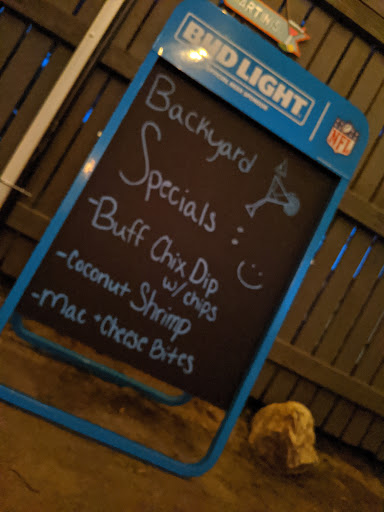 BUD LIGHT
NFL
Backyard
Specials :
-Buff Chix Dip
w/ chips
-Coconut Shrimp
-Mac + Cheese Bites